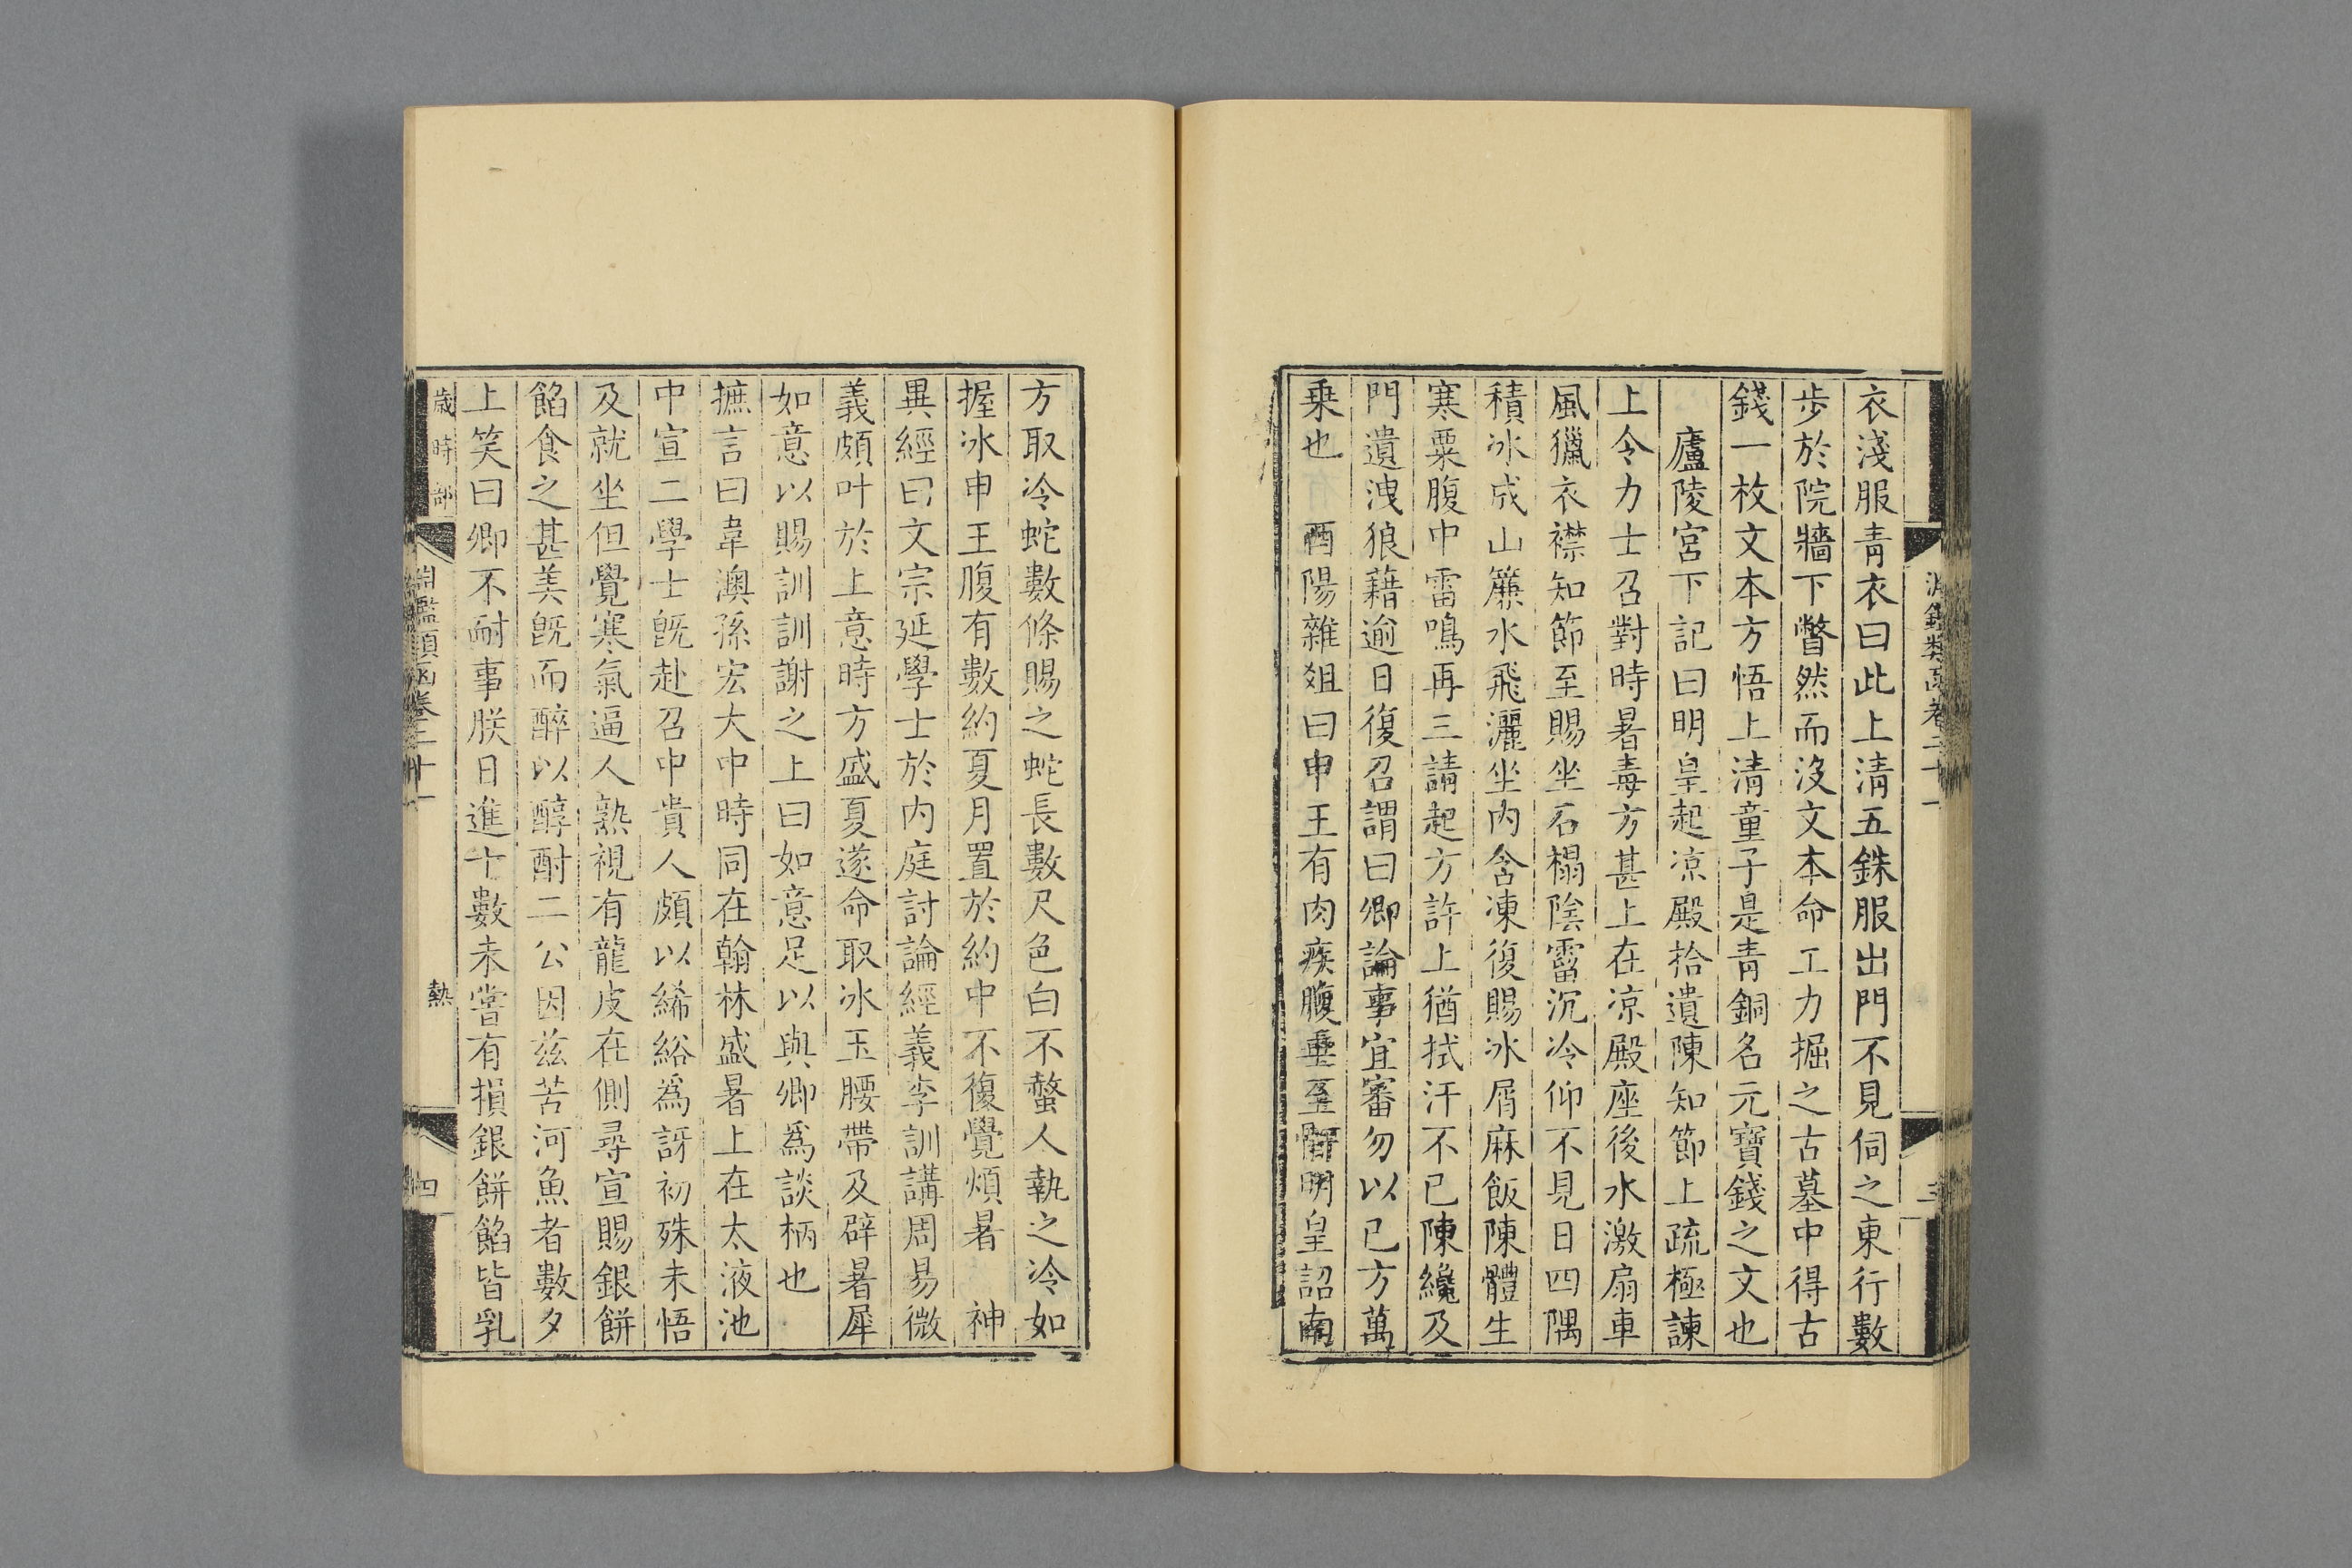 衣淺服青衣曰此上清五銖服出門不見伺之東行數
步於院牆下瞥然而沒文本命工力掘之古墓中得古
錢一枚文本方悟上清童子是青銅名元寶錢之文也
廬陵宮下記曰明皇起凉殿拾遺陳知節上疏極諫
上令力士召對時暑毒方甚上在凉殿座後水激扇車
風獵衣襟知節至賜坐石榻陰霤沉冷仰不見日四隅
積冰成山簾水飛灑坐内含凍復賜冰屑麻飯陳體生
寒粟腹中雷鳴再三請起方許上猶拭汗不已陳纔及
門遺洩狼藉逾日復召謂曰卿論事宜審勿以已方萬
乗也 酉陽雜俎曰申王有肉疾腹垂至骭明皇詔南
方取冷蛇數條賜之蛇長數尺色白不螫人執之冷如
握冰申王腹有數約夏月置於約中不復覺煩暑 神
異經曰文宗延學士於内庭討論經義李訓講周易微
義頗叶於上意時方盛夏遂命取冰玉腰帶及辟暑犀
如意以賜訓訓謝之上曰如意足以與卿爲談柄也
摭言曰韋澳孫宏大中時同在翰林盛暑上在太液池
中宣二學士既赴召中貴人頗以絺綌爲訝初殊未悟
及就坐但覺寒氣逼人熟視有龍皮在側尋宣賜銀餅
餡食之甚美既而醉以醇酎二公因兹苦河魚者數夕
上笑曰卿不耐事朕日進十數未嘗有損銀餅餡皆乳
歲時部
淵鑑類函卷二十一
熱
四